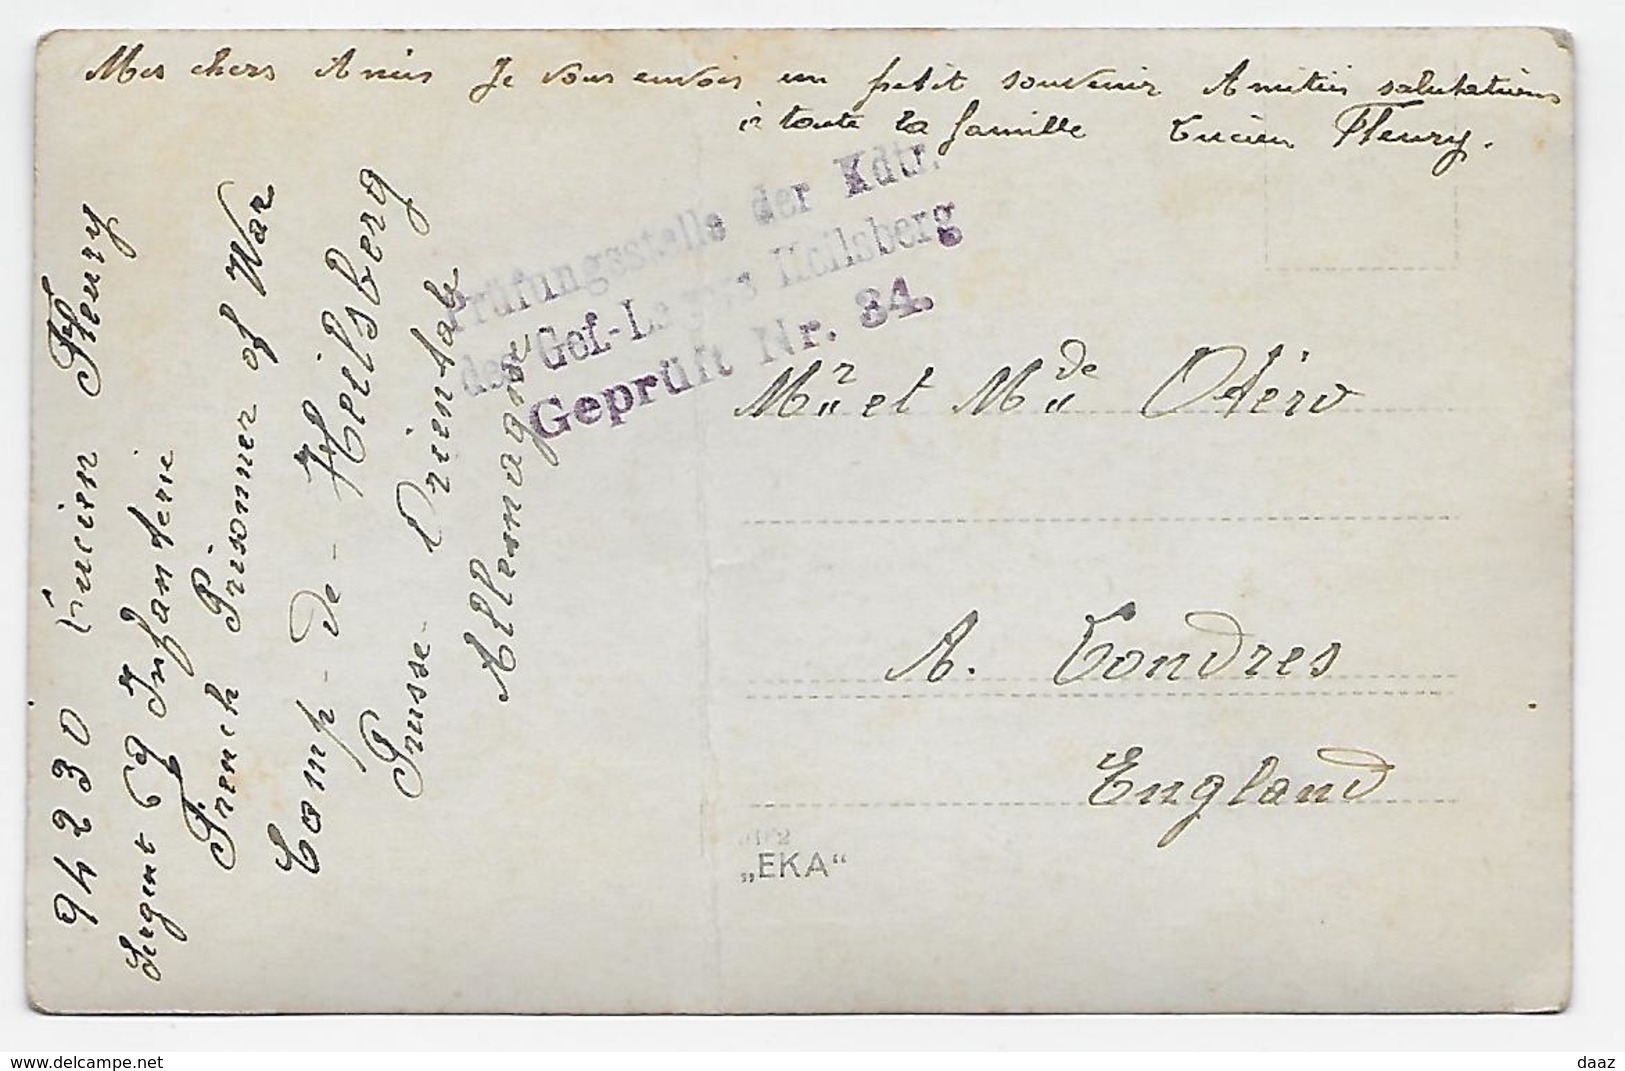 Mes chers Amis Je vous envois un petit souvenir Amitiés salutations
à toute la famille Lucien Fleury.
94230 Lucien Fleury
Sergent 69 Infanterie
French Prisoner of War
Camp-de-Heilsberg
Prusse-Orientale
Allemagne
Prüfungsstelle der Kdtr.
des Gef.-Lagers Heilsberg
Geprüft Nr. 34.
Mr et Mde
A. Londres
England
„EKA“
www.delcampe.net
daaz